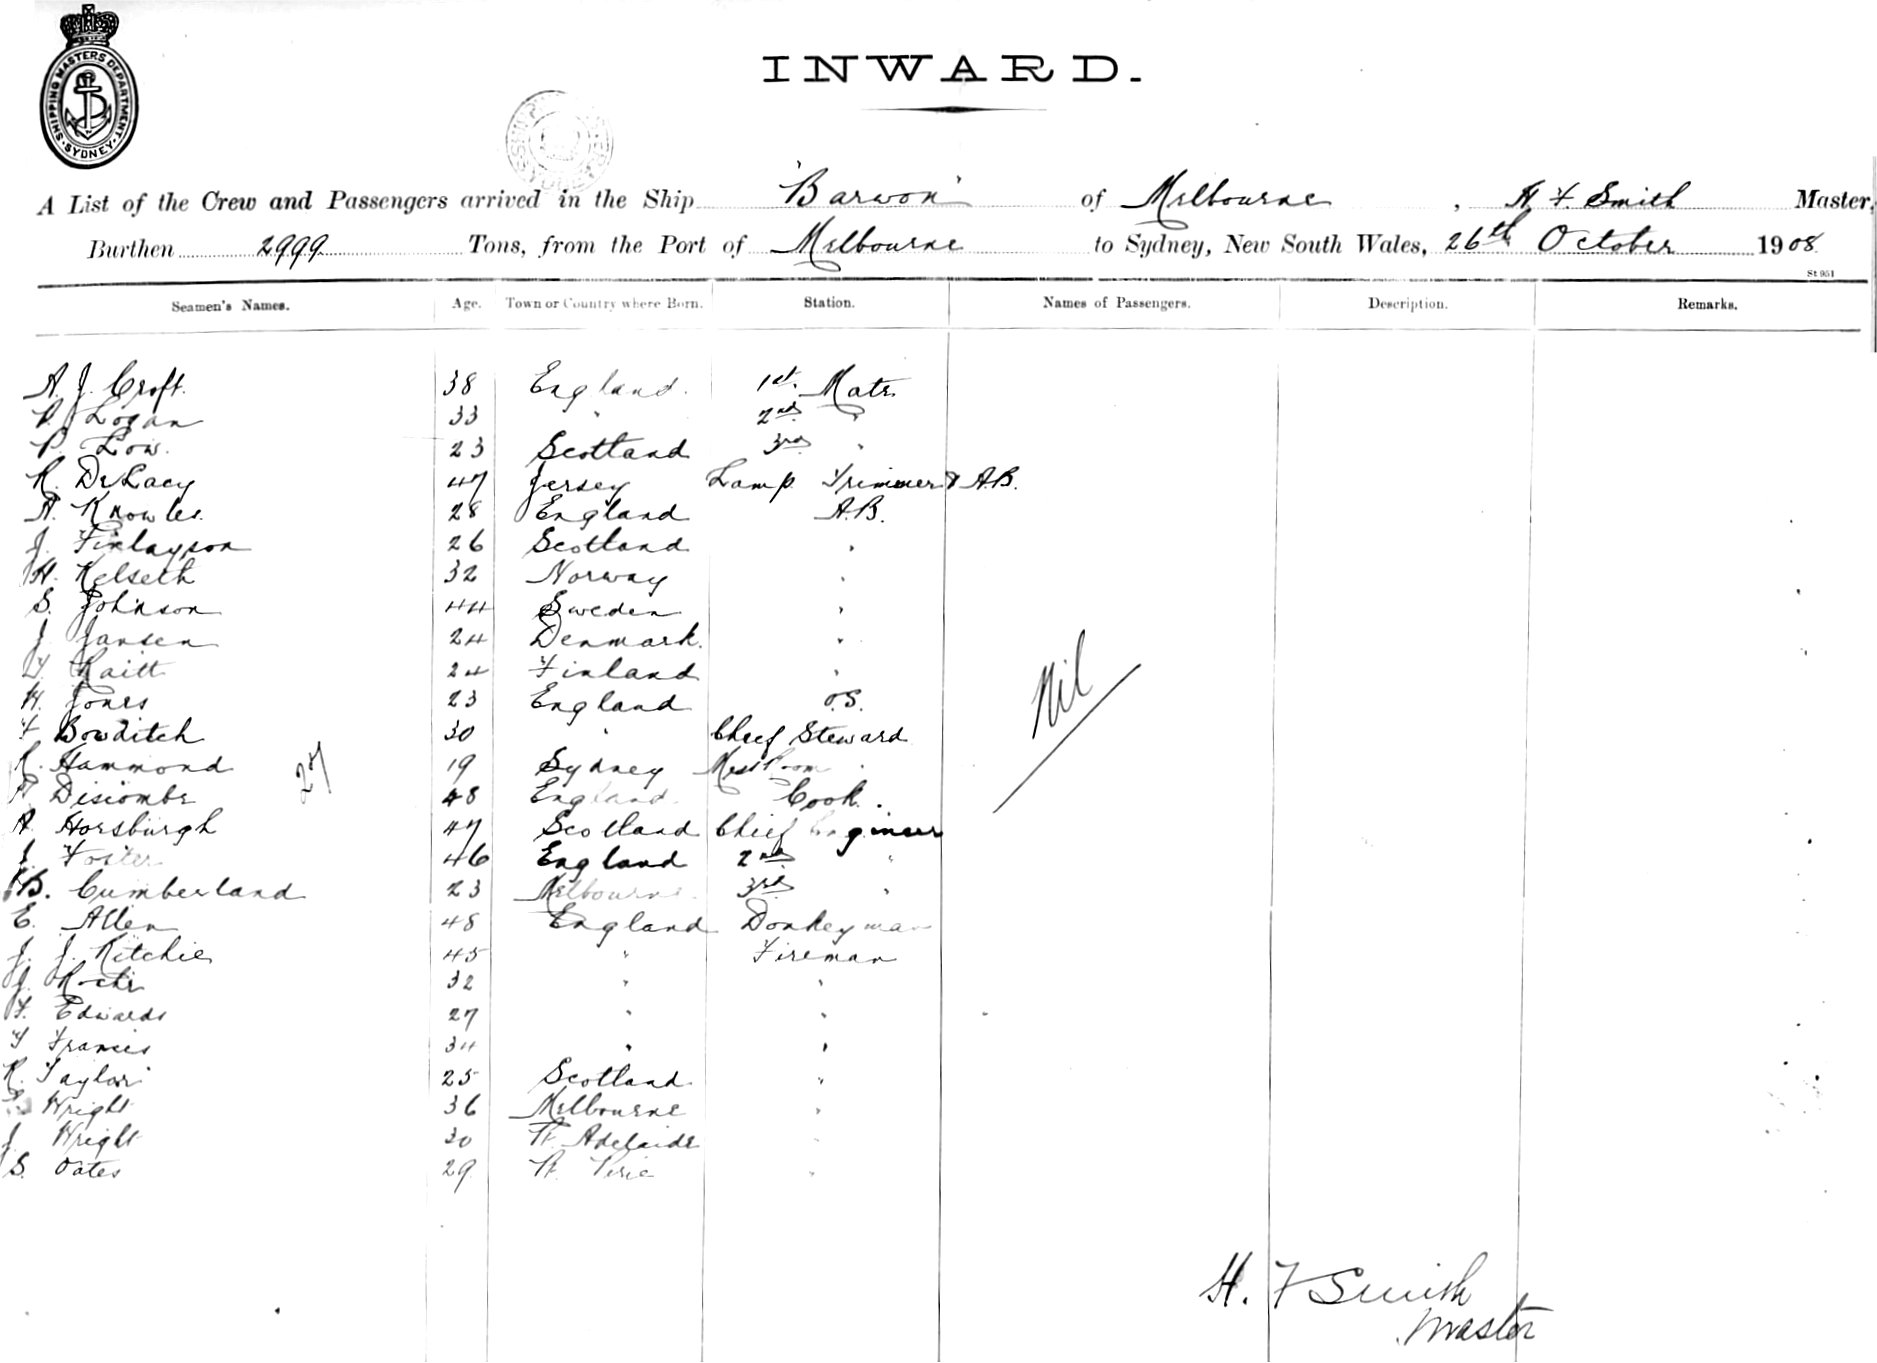 SHIPPING MASTERS DEPARTMENT
SYDNEY
INWARD.
A List of the Crew and Passengers arrived in the Ship "Barwon" of Melbourne, H F Smith Master,
Burthen 2999 Tons, from the Port of Melbourne to Sydney, New South Wales, 26th October 1908
St 951
Seamen's Names. Age. Town or Country where Born. Station. Names of Passengers. Description. Remarks.
A. J. Croft. 38 England. 1st. Mate
Logan 33 " 2nd "
P. Low. 23 Scotland 3rd "
R. DeLacy 47 Jersey Lamp Trimmer & A.B.
A. Knowles. 28 England A.B.
J. Finlayson 26 Scotland "
H. Kelseth 32 Norway "
S. Johnson 44 Sweden "
J. Jansen 24 Denmark. "
Raitt 24 Finland "
H. Jones 23 England O.S.
F Bowditch 30 " Chief Steward
R. Hammond 19 Sydney Mess Room "
Discombe 48 England. Cook.
A. Horsburgh 47 Scotland Chief Engineer
J. Foster 46 England 2nd "
B. Cumberland 23 Melbourne. 3rd "
E. Allen 48 England Donkeyman
J. J. Ritchie 45 " Fireman
J. Roche 32 " "
F. Edwards 27 " "
Francis 34 " "
R. Taylor 25 Scotland "
Wright 36 Melbourne "
J. Wright 30 Pt. Adelaide "
S. Oates 29 Pt. Pirie "
27
Nil
H. F Smith
Master